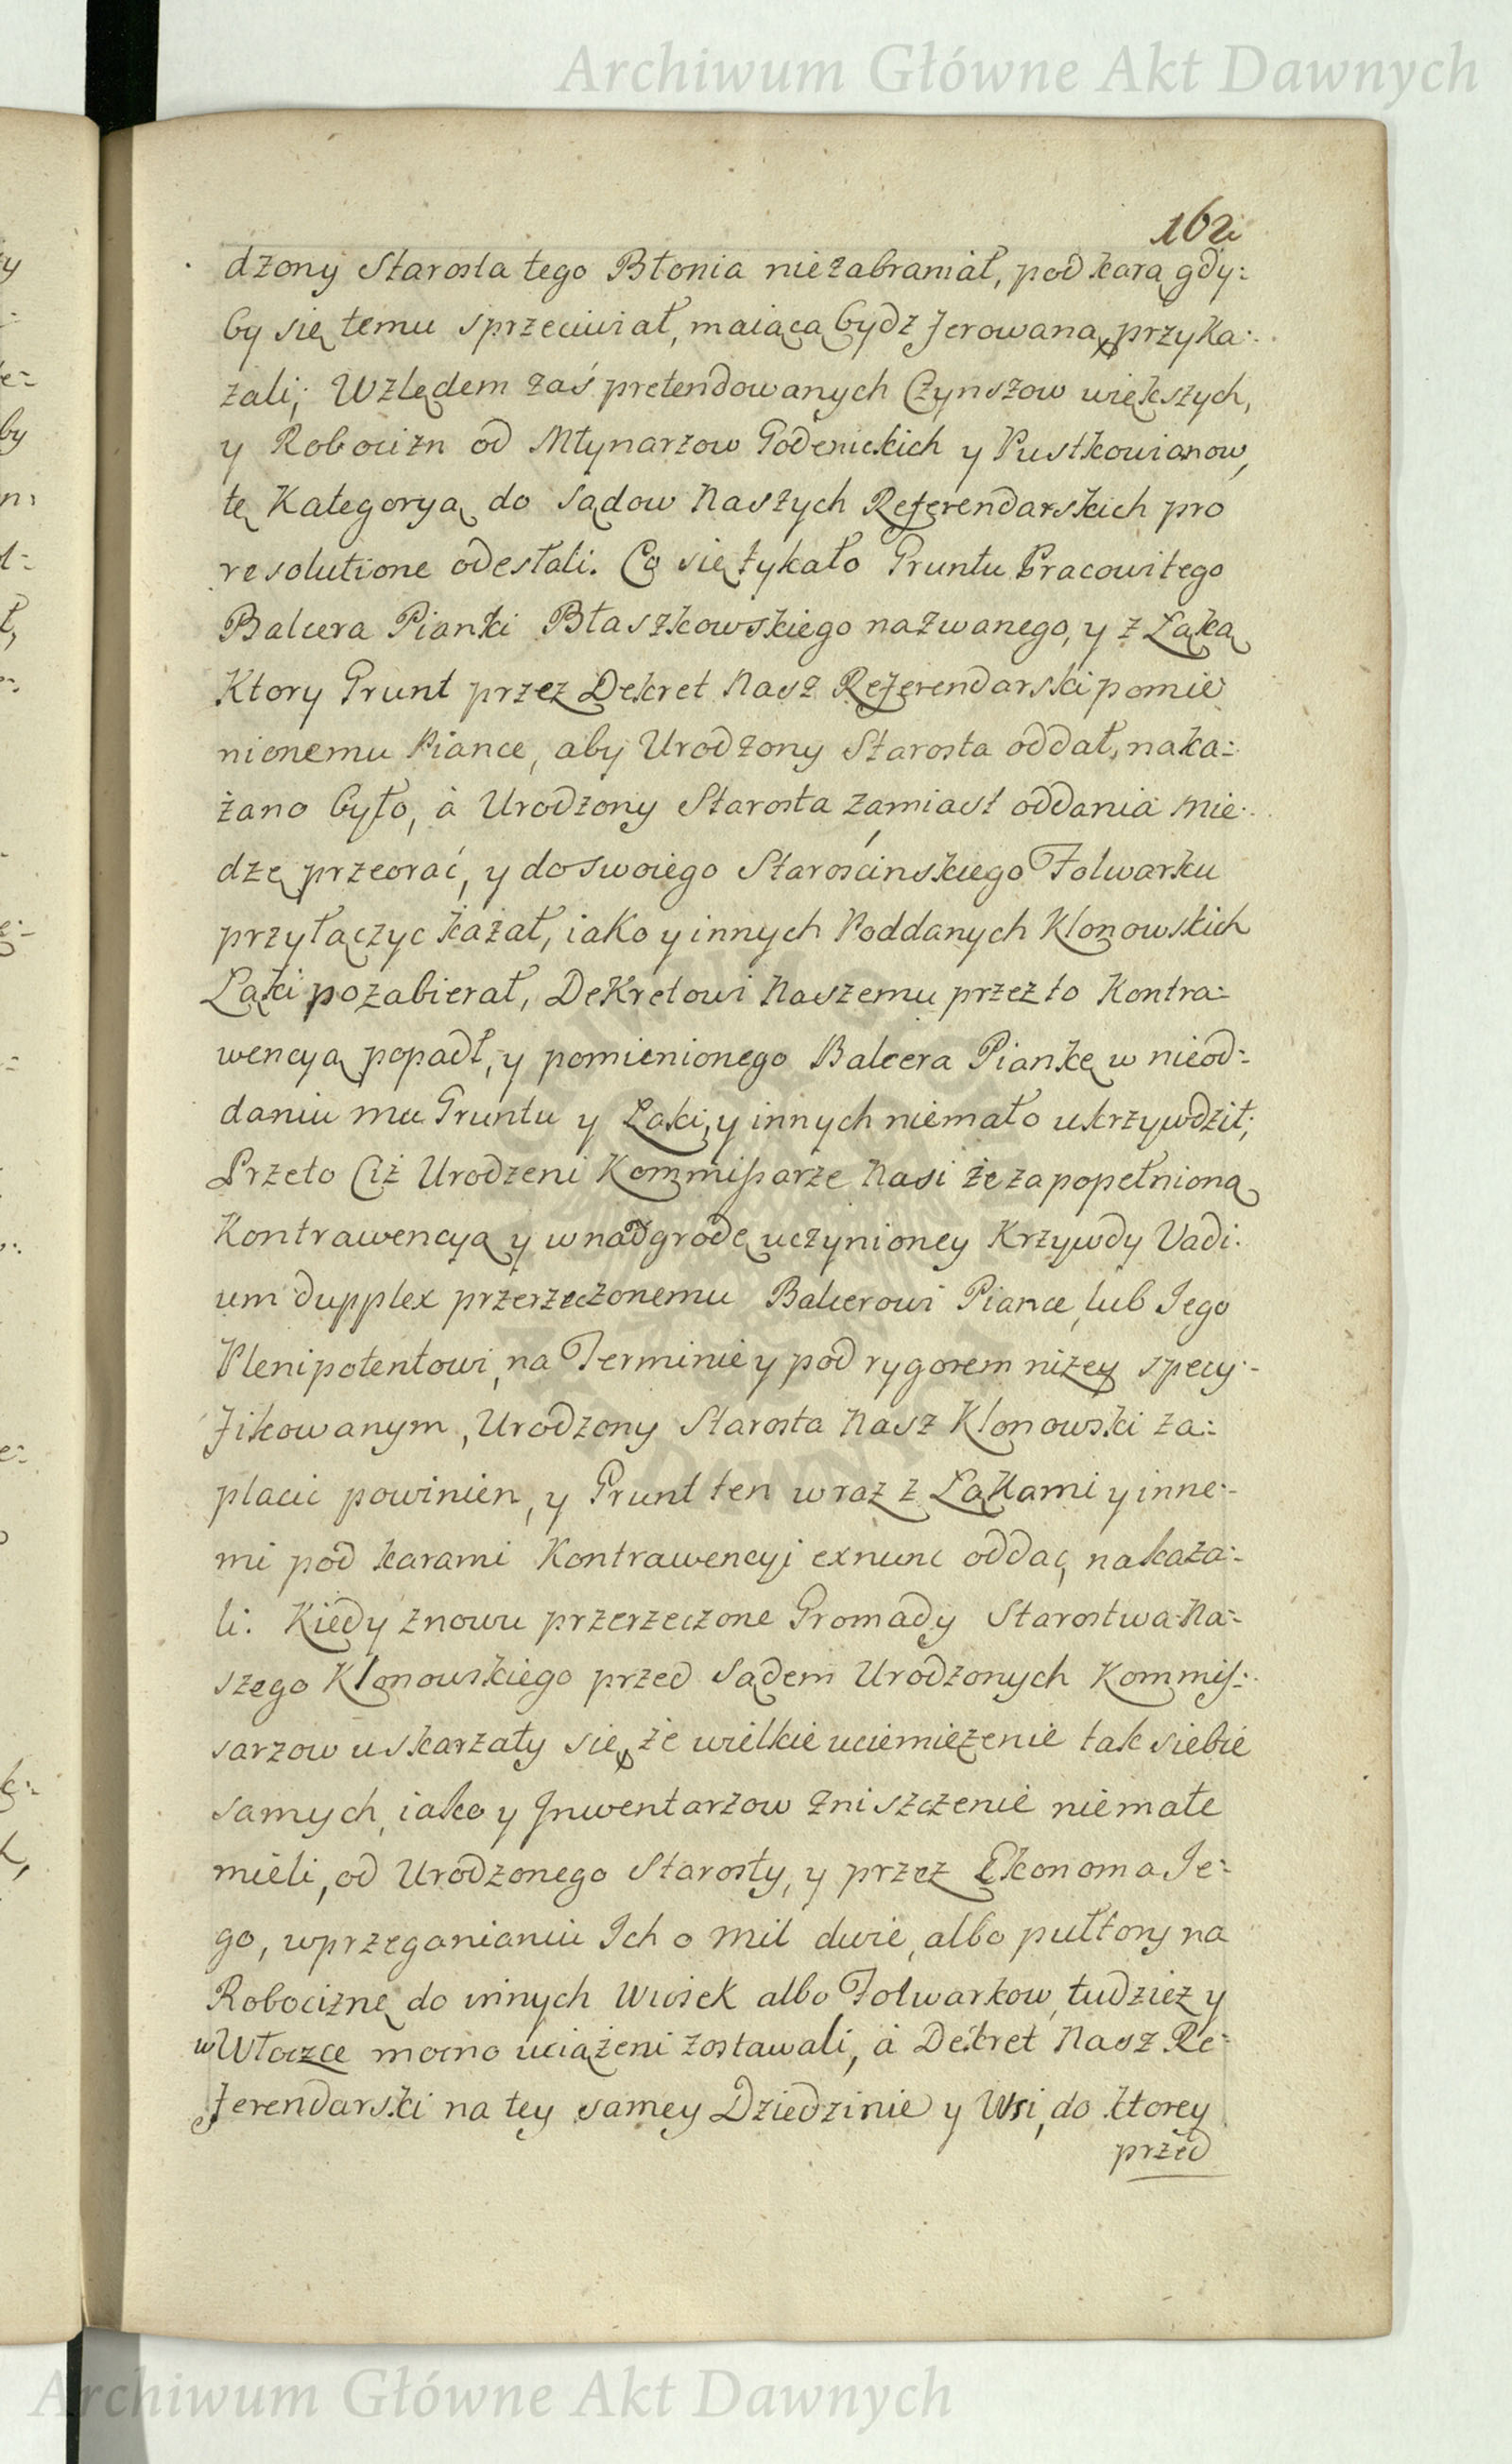 Archiwum Główne Akt Dawnych
162
dzony Starosta tego Błonia niezabraniał, pod karą gdy:
by się temu sprzeciwiał, maiącą bydź ferowaną, przyka:
zali; Wzlędem zaś pretendowanych Czynszow większych,
y Robocizn od Młynarzow Godenickich y Pustkowianow,
tę Kategoryą do Sądow Naszych Referendarskich pro
resolutione odesłali. Co się tykało Gruntu Pracowitego
Balcera Pianki Błaszkowskiego nazwanego, y z Łąką
Ktory Grunt przez Dekret Nasz Referendarski pomie
nionemu Piance, aby Urodzony Starosta oddał, naka:
żano było, à Urodzony Starosta zamiast oddania mie:
dzę przeorać, y do swoiego Starościnskiego Folwarku
przyłączyc kazał, iako y innych Poddanych Klonowskich
Łąki pozabierał, Dekretowi Naszemu przez to Kontra:
wencyą popadł, y pomienionego Balcera Piankę w nieod:
daniu mu Gruntu y Łąki, y innych niemało ukrzywdził;
Przeto Ciż Urodzeni Kommissarze Nasi że za popełnioną
Kontrawencyą y w nadgrodę uczynioney Krzywdy Vadi:
um dupplex przerzeczonemu Balcerowi Piance, lub Jego
Plenipotentowi, na Terminie y pod rygorem niżey specy:
fikowanym, Urodzony Starosta Nasz Klonowski za:
płacic powinien, y Grunt ten wraz z Łąkami y inne:
mi pod karami Kontrawencyi exnunc oddać, nakaza:
li. Kiedy znowu przerzeczone Gromady Starostwa Na:
szego Klonowskiego przed Sądem Urodzonych Kommis:
sarzow uskarzały się, że wielkie uciemiężenie tak siebie
samych, iako y Inwentarzow zniszczenie niemałe
mieli, od Urodzonego Starosty, y przez Ekonoma Je:
go, w przeganianiu Ich o mil dwie, albo pułtory na
Robociznę do innych Wiosek albo Folwarkow, tudziez y
w Włoczce mocno uciążeni zostawali, à Dekret Nasz Re:
ferendarski na tey samey Dziedzinie y Wsi, do ktorey
przed
Archiwum Główne Akt Dawnych